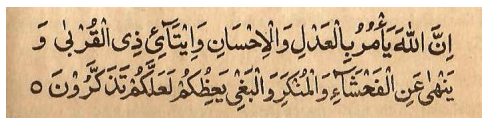 اِنَّ اللهَ يَأْمُرُ بِالْعَدْلِ وَالْاِحْسَانِ وَاِيْتَآئِ ذِى الْقُرْبٰى وَ
يَنْهٰى عَنِ الْفَحْشَآءِ وَالْمُنْكَرِ وَالْبَغْىِ يَعِظُكُمْ لَعَلَّكُمْ تَذَكَّرُوْنَ ٥